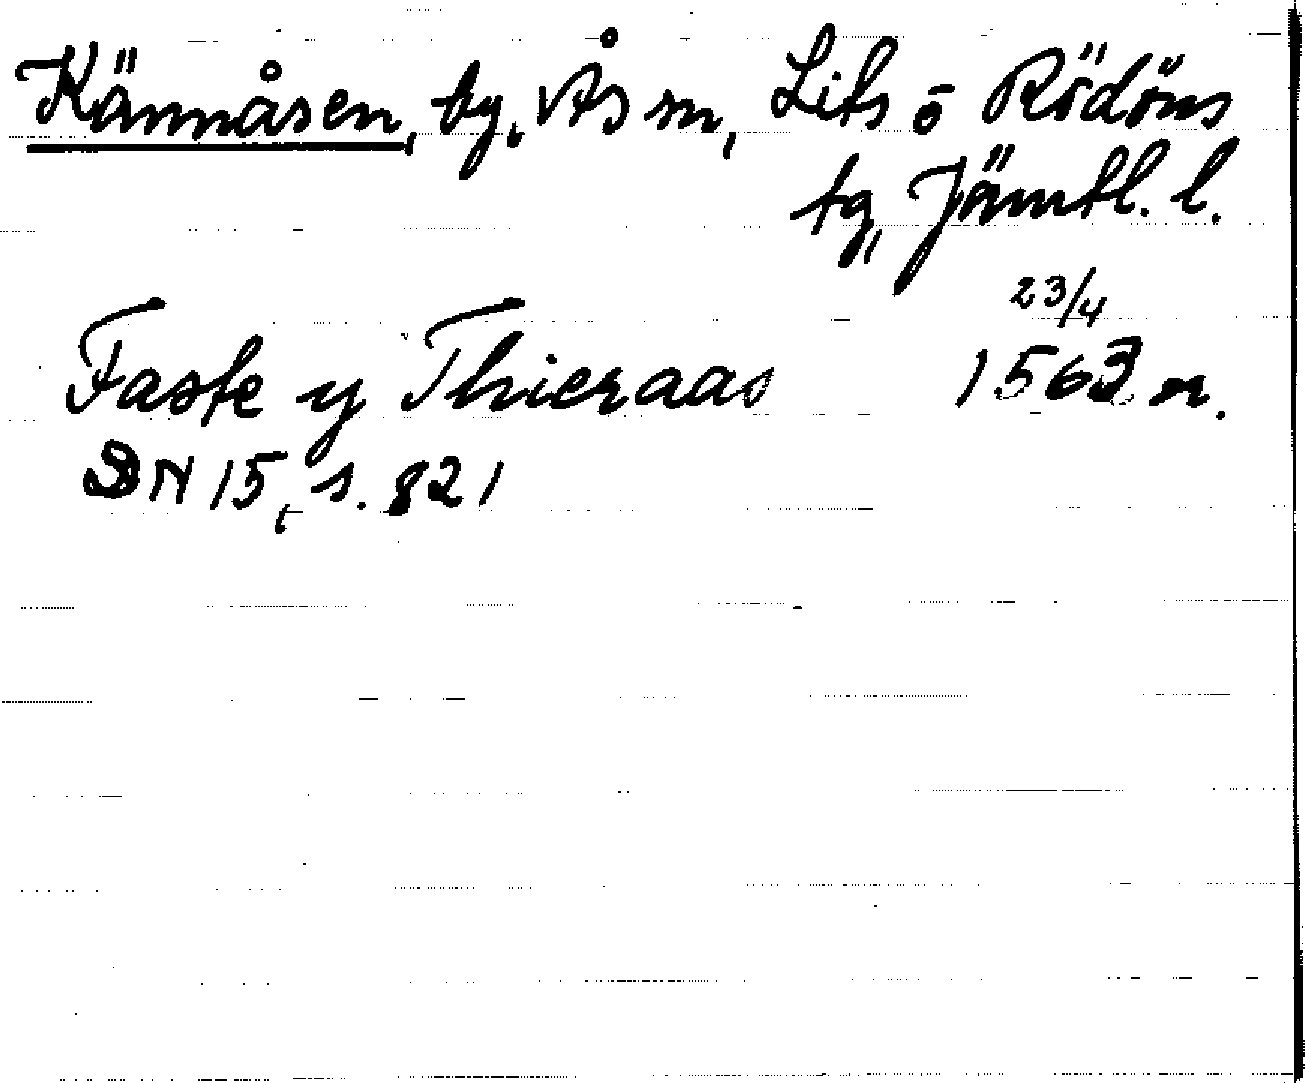 Kännåsen, by, Ås sn, Lits ō Rödöns
tg, Jämtl. l.
23/4
Faste y Thieraas 1563 or.
DN 15, s. 821